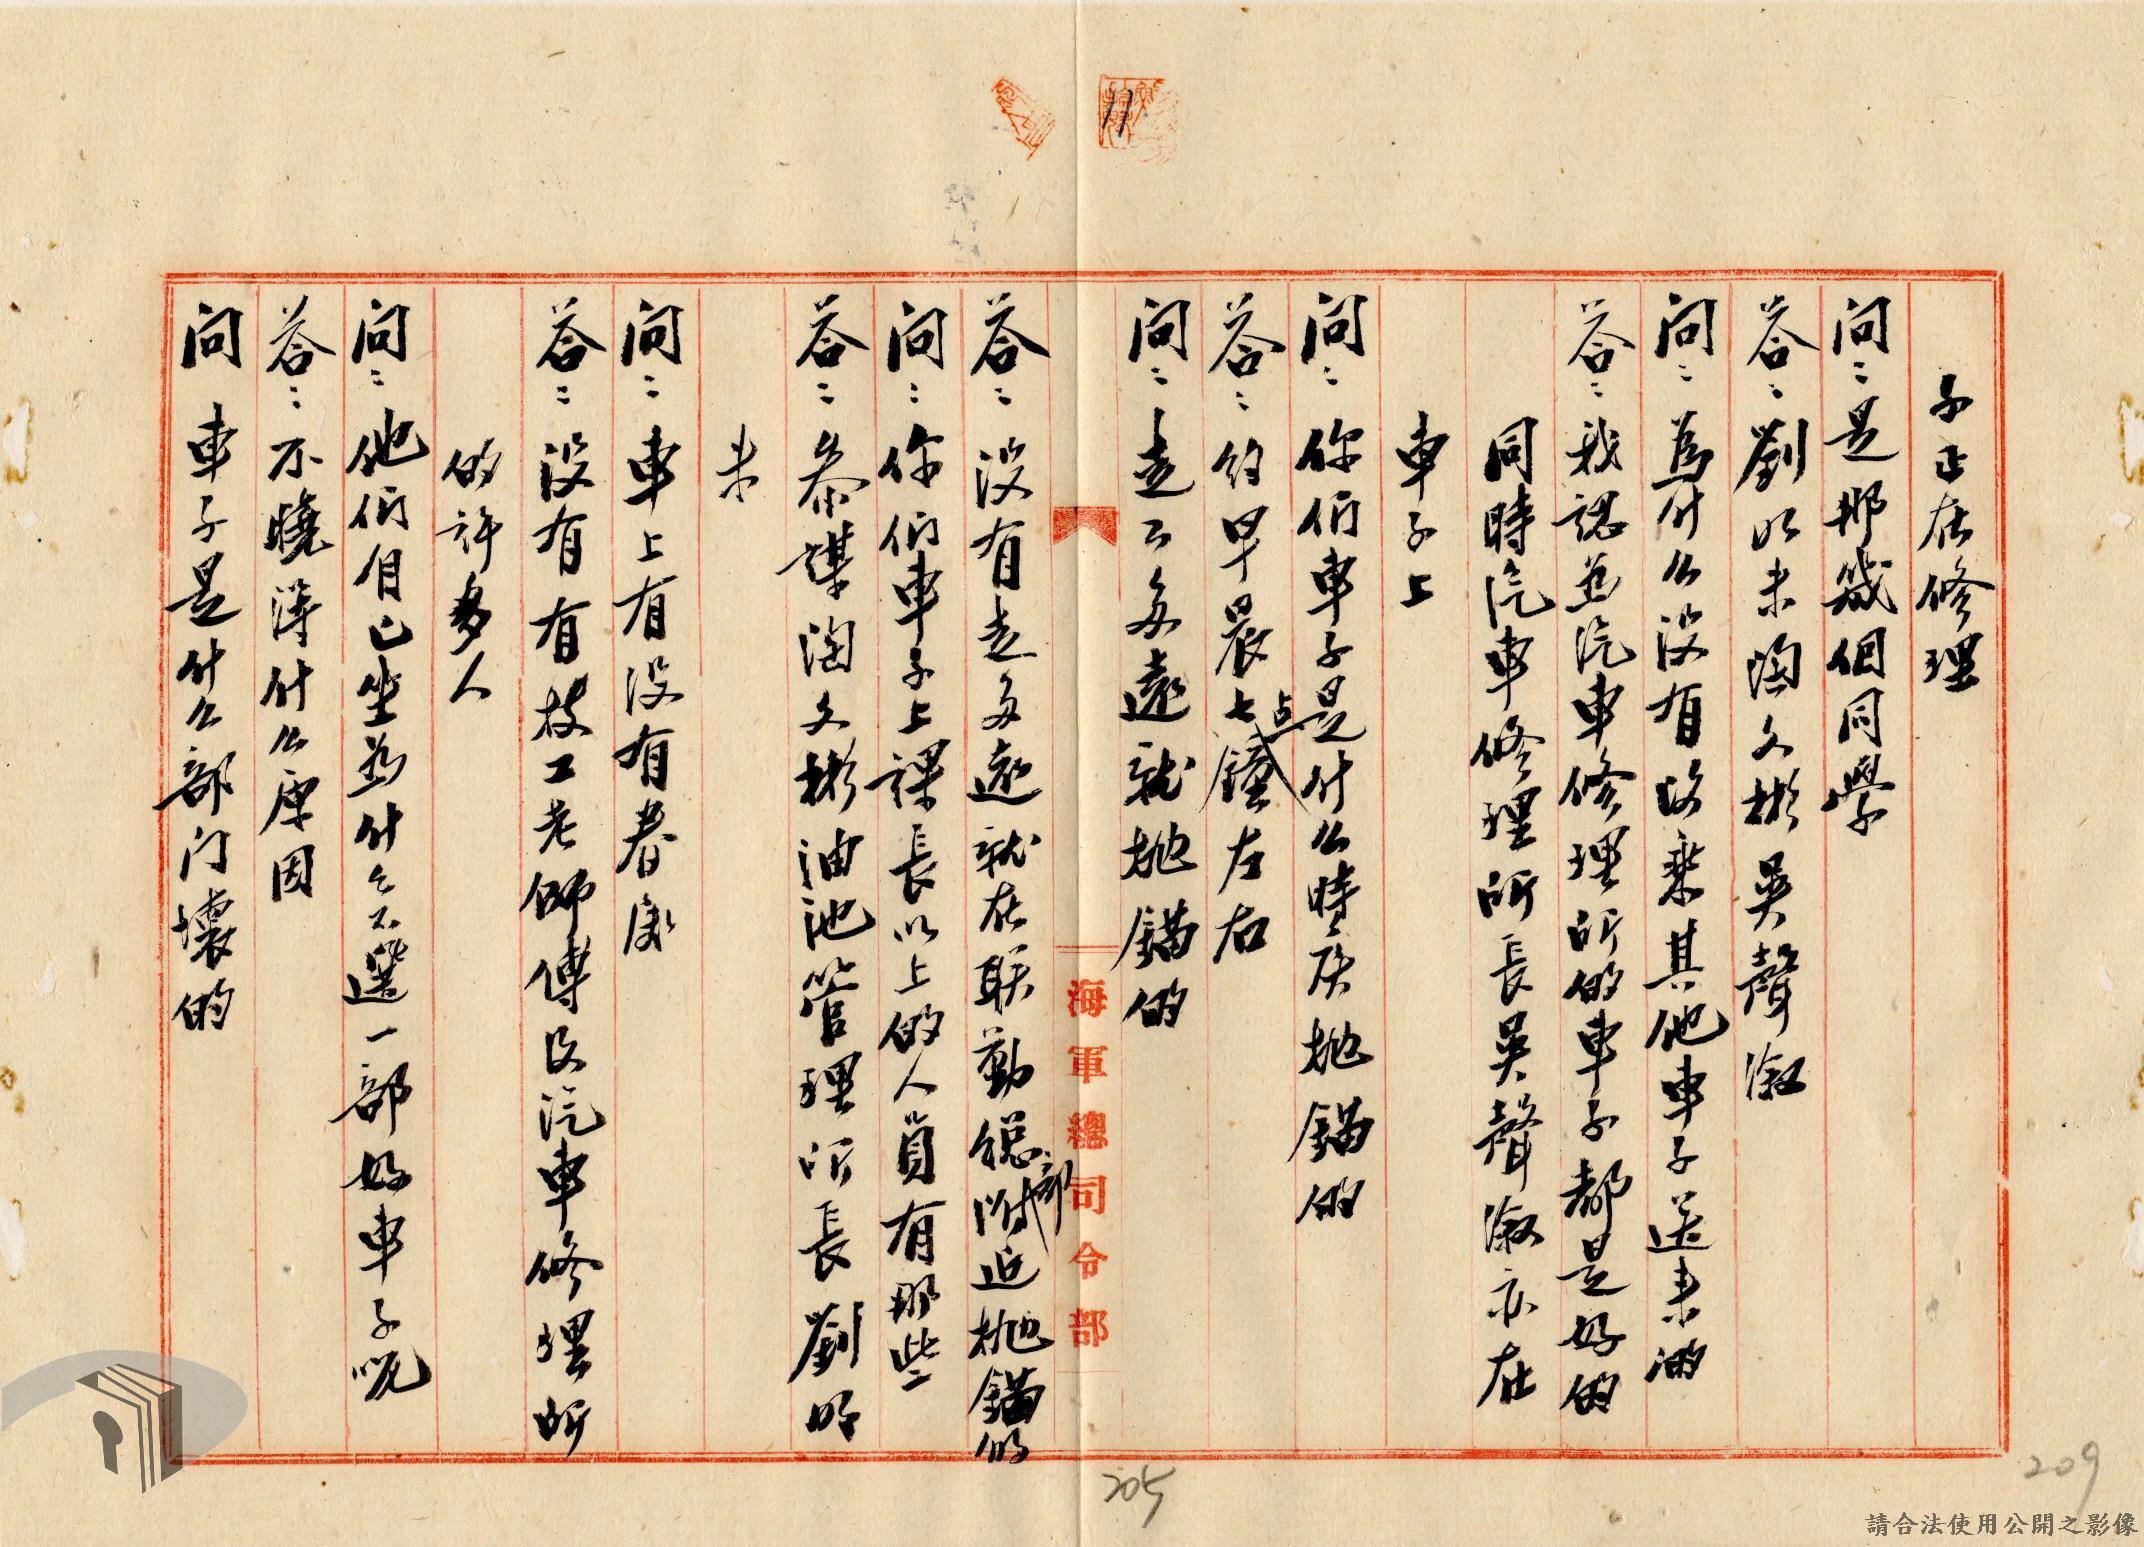 子正在修理
问：是那幾個同學
答：劉明來淘文彬吳聲淑
问：為什么沒有改乘其他車子送來的
答：我認為汽車修理所的車子都是好的
同時汽車修理所長吳聲淑亦在
車子上
问：你们車子是什么時候抛錨的
答：约早晨七点鐘左右
问：走了多遠就抛錨的
答：沒有走多遠就在联勤總部附近抛錨的
问：你们車子上課長以上的人員有那些
答：參謀淘文彬油池管理所長劉明
来
问：車上有沒有眷屬
答：沒有有技工老師傅及汽車修理所
的許多人
问：他们自己坐為什么不選一部好車子呢
答：不曉得什么原因
问 車子是什么部门壞的
海軍總司令部
11
205
209
請合法使用公開之影像